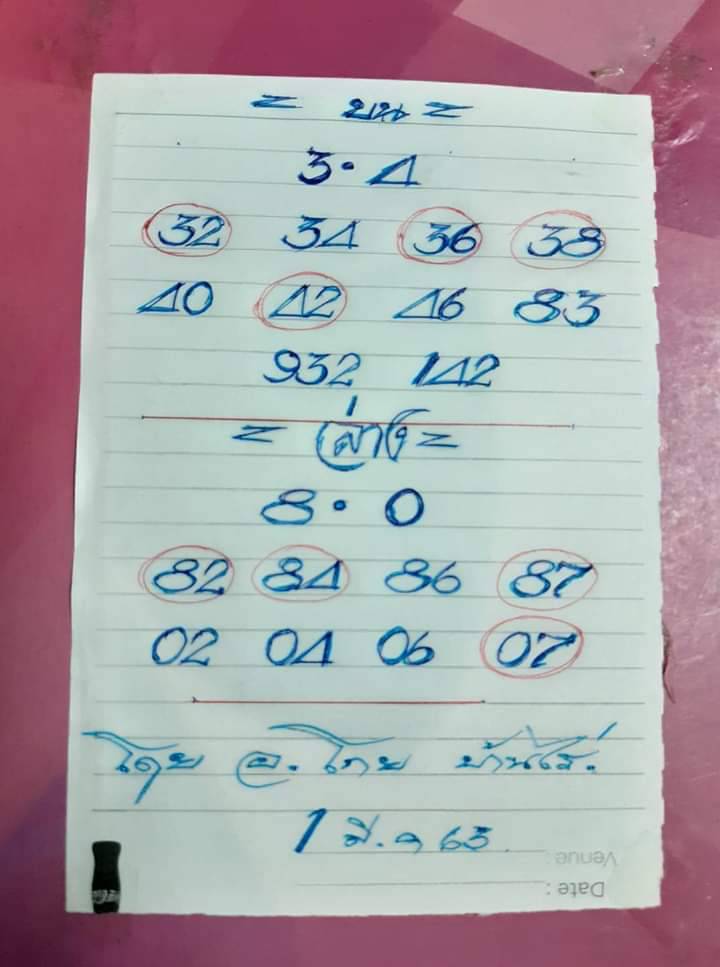 = บน =
3 · 4
32 34 36 38
40 42 46 83
932 142
= ล่าง =
8 · 0
82 84 86 87
02 04 06 07
โดย อ. โกย บ้านไร่.
1 มี.ค 63
Venue:
Date: